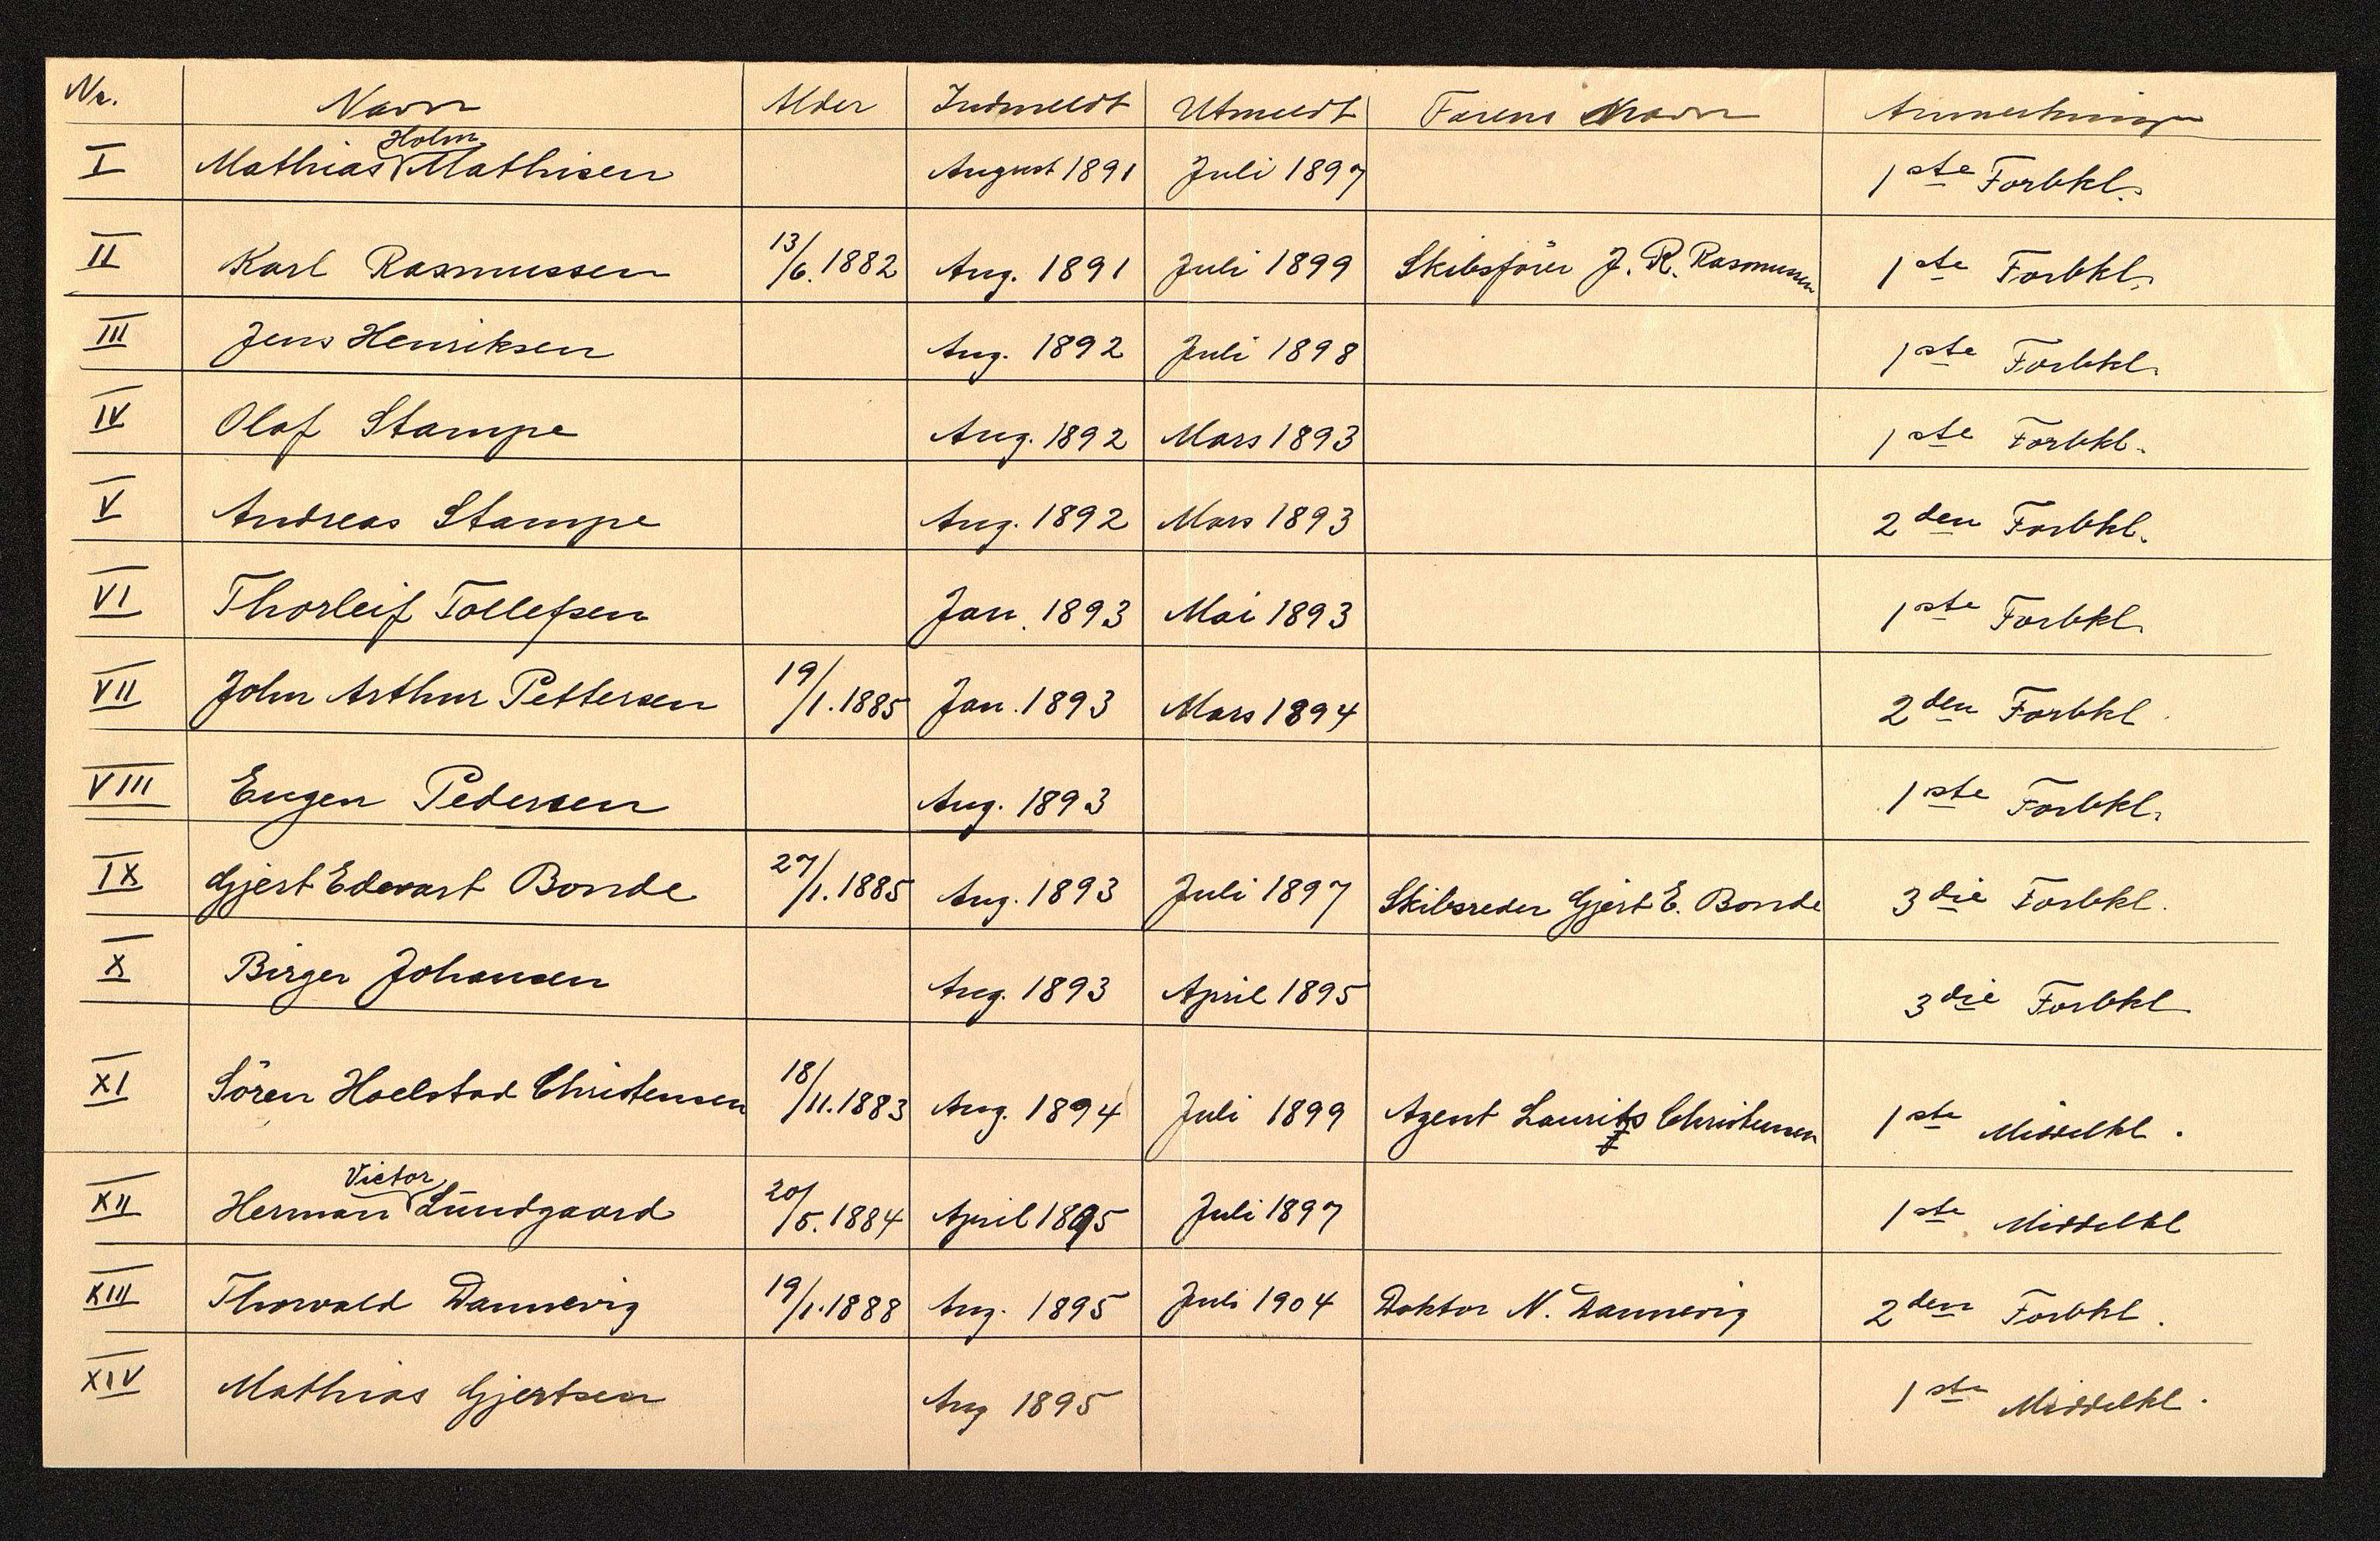 Nr. Navn Alder Indmeldt Utmeldt Farens Navn Anmerkning
Holm
I Mathias Mathisen August 1891 Juli 1897 1ste Forbkl.
II Karl Rasmussen 13/6.1882 Aug. 1891 Juli 1899 Skibsförer J. R. Rasmussen 1ste Forbkl.
III Jens Henriksen Aug. 1892 Juli 1898 1ste Forbkl.
IV Olaf Stampe Aug. 1892 Mars 1893 1ste Forbkl.
V Andreas Stampe Aug. 1892 Mars 1893 2den Forbkl.
VI Thorleif Tollefsen Jan. 1893 Mai 1893 1ste Forbkl.
VII John Arthur Pettersen 19/1.1885 Jan. 1893 Mars 1894 2den Forbkl.
VIII Eugen Pedersen Aug. 1893 1ste Forbkl.
IX Gjert Edevart Bonde 27/1.1885 Aug. 1893 Juli 1897 Skibsreder Gjert E. Bonde 3die Forbkl.
X Birger Johansen Aug. 1893 April 1895 3die Forbkl
XI Sören Hoelstad Christensen 18/11.1883 Aug. 1894 Juli 1899 Agent Laurits Christensen 1ste Middelkl.
Victor
XII Herman Lundgaard 20/5.1884 April 1895 Juli 1897 1ste Middelkl
XIII Thorvald Dannevig 19/1.1888 Aug. 1895 Juli 1904 Doktor N. Dannevig 2den Forbkl.
XIV Mathias Gjertsen Aug 1895 1ste Middelkl.